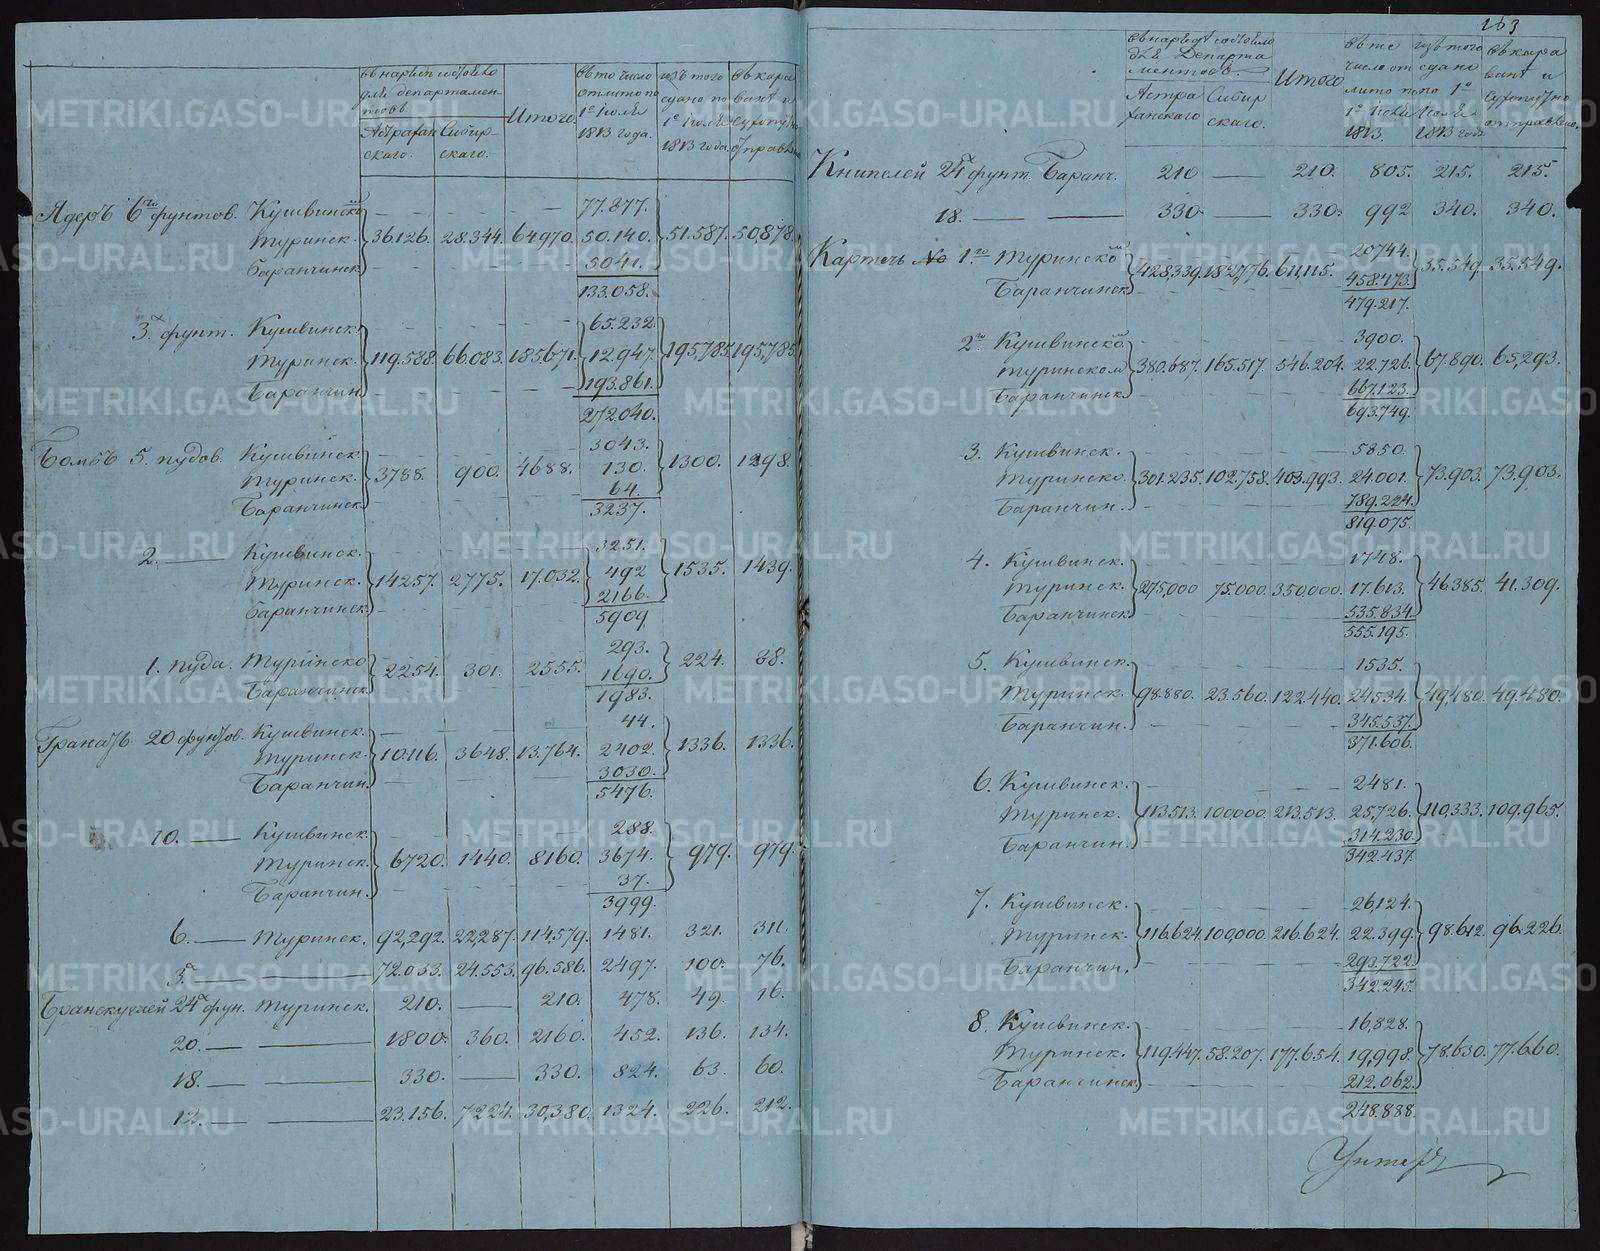 163
Итого
1813 года.
Итого
Ядеръ 6ти фунтов. Кушвинско
77.877.
Туринск. 36.126. 28.344. 64970. 50.140. 51.587. 50,878.
Баранчинск. 5041.
133.058.
3х фунт. Кушвинск. 65.232.
Туринск. 119.588. 66.083. 185.671. 12.947. 195,785. 195,785.
Баранчин. 193.861.
272.040.
Бомбъ 5. пудов. Кушвинск. 3043.
Туринск. 3788. 900. 4688. 130. 1300. 1298.
Баранчинск. 64.
3237.
2. Кушвинск. 3251.
Туринск. 14257. 2775. 17.032. 492 1535. 1439.
Баранчинск. 2166.
5909
1. пуда. Туринско 293.
2254. 301. 2555. 224. 38.
Баранчинск 1690.
1983.
Гранатъ 20 фунтов. Кушвинск. 44.
Туринск. 10.116. 3648. 13.764. 2402. 1336. 1336.
Баранчин. 3030.
5476.
10. Кушвинск. 288.
Туринск. 6720. 1440. 8160. 3674. 979. 979.
Баранчин. 37.
3999.
6. Туринск. 92,292. 22,287. 114,579. 1481. 321. 311.
3х 72.033. 24.553. 96.586. 2497. 100. 76.
24х фун. Туринск. 210. 210. 478. 49. 16.
20. 1800. 360. 2160. 452. 136. 134.
18. 330. 330. 824. 63. 60.
12. 23.156. 7224. 30,380. 1324. 226. 212.
Книпелей 24х фунт. Баранч. 210 210. 805. 215. 215.
18. 330. 330. 992 340. 340.
Картечь № 1го Туринско 20744.
428,339. 182,776. 611,115. 35.549. 35.549.
Баранчинск 458.473.
479.217.
2го Кушвинско 3900.
Туринском 380.687. 165.517. 546.204. 22.726. 67.890. 65,293.
Баранчинск 667.123.
693.749.
3. Кушвинск. 5850.
Туринско 301.235. 102.758. 403.993. 24.001. 73.903. 73.903.
Баранчин. 789.224.
819.075.
4. Кушвинск. 1748.
Туринск. 275,000 75.000. 350.000. 17.613. 46.385. 41.309.
Баранчинск 535.834.
555.195.
5. Кушвинск. 1535.
Туринск. 98.880. 23.560. 122.440. 24534. 49,480. 49.480.
Баранчин. 345.537.
371.606.
6. Кушвинск. 2481.
Туринск. 113513. 100,000. 213.513. 25,726. 110,333. 109.965.
Баранчин. 314.230.
342.437.
7. Кушвинск. 26,124.
Туринск. 116.624. 100,000. 216.624. 22.399. 98.612. 96.226.
Баранчин. 293,722.
342.245.
8. Кушвинск. 16,828.
Туринск. 119,447. 58.207. 177.654. 19,998. 78.630. 77.660.
Баранчинск 212.062.
248.888.
METRIKI.GASO-URAL.RU